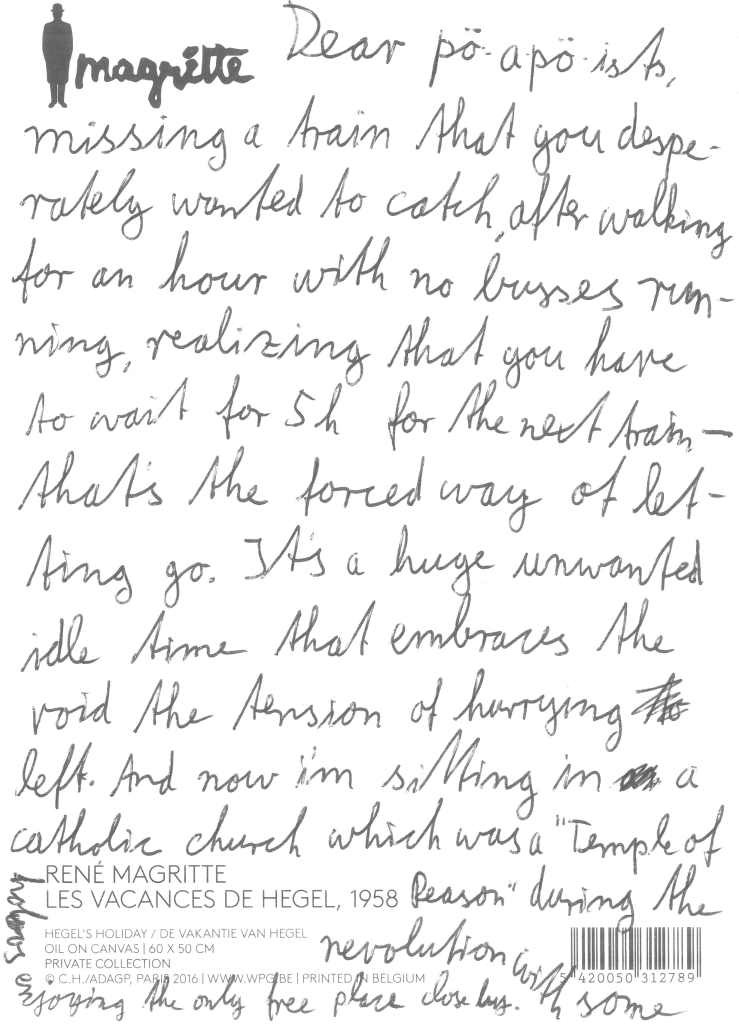 magritte
Dear pö-apö-ists,
missing a train that you despe-
rately wanted to catch, after walking
for an hour with no busses run-
ning, realizing that you have
to wait for 5h for the next train—
that's the forced way of let-
ting go. It's a huge unwanted
idle time that embraces the
void the tension of hurrying
left. And now i'm sitting in a
catholic church which was a "Temple of
Reason" during the
revolution with some
enjoying the only free place close by.
RENÉ MAGRITTE
LES VACANCES DE HEGEL, 1958
HEGEL'S HOLIDAY / DE VAKANTIE VAN HEGEL
OIL ON CANVAS | 60 X 50 CM
PRIVATE COLLECTION
© C.H./ADAGP, PARIS 2016 | WWW.WPG.BE | PRINTED IN BELGIUM
5 420050 312789